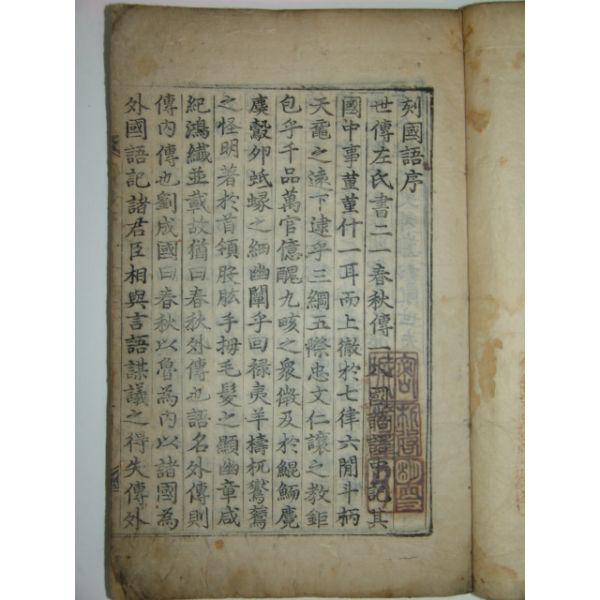 刻國語序
世傳左氏書二一春秋傳一國語語中記其
國中事蓳蓳什一耳而上徹於七律六閒斗柄
天黿之遠下逮乎三綱五際忠文仁讓之教鉅
包乎千品萬官億醜九畡之衆微及於鯤鮞麑
麌鷇卵蚔蝝之細幽闡乎回祿夷羊檮杌鸑鷟
之怪明著於首領股肱手拇毛髮之顯幽章咸
紀鴻纖並載故猶曰春秋外傳也語名外傳則
傳內傳也劉成國曰春秋以魯為內以諸國為
外國語記諸君臣相與言語謀議之得失傳外